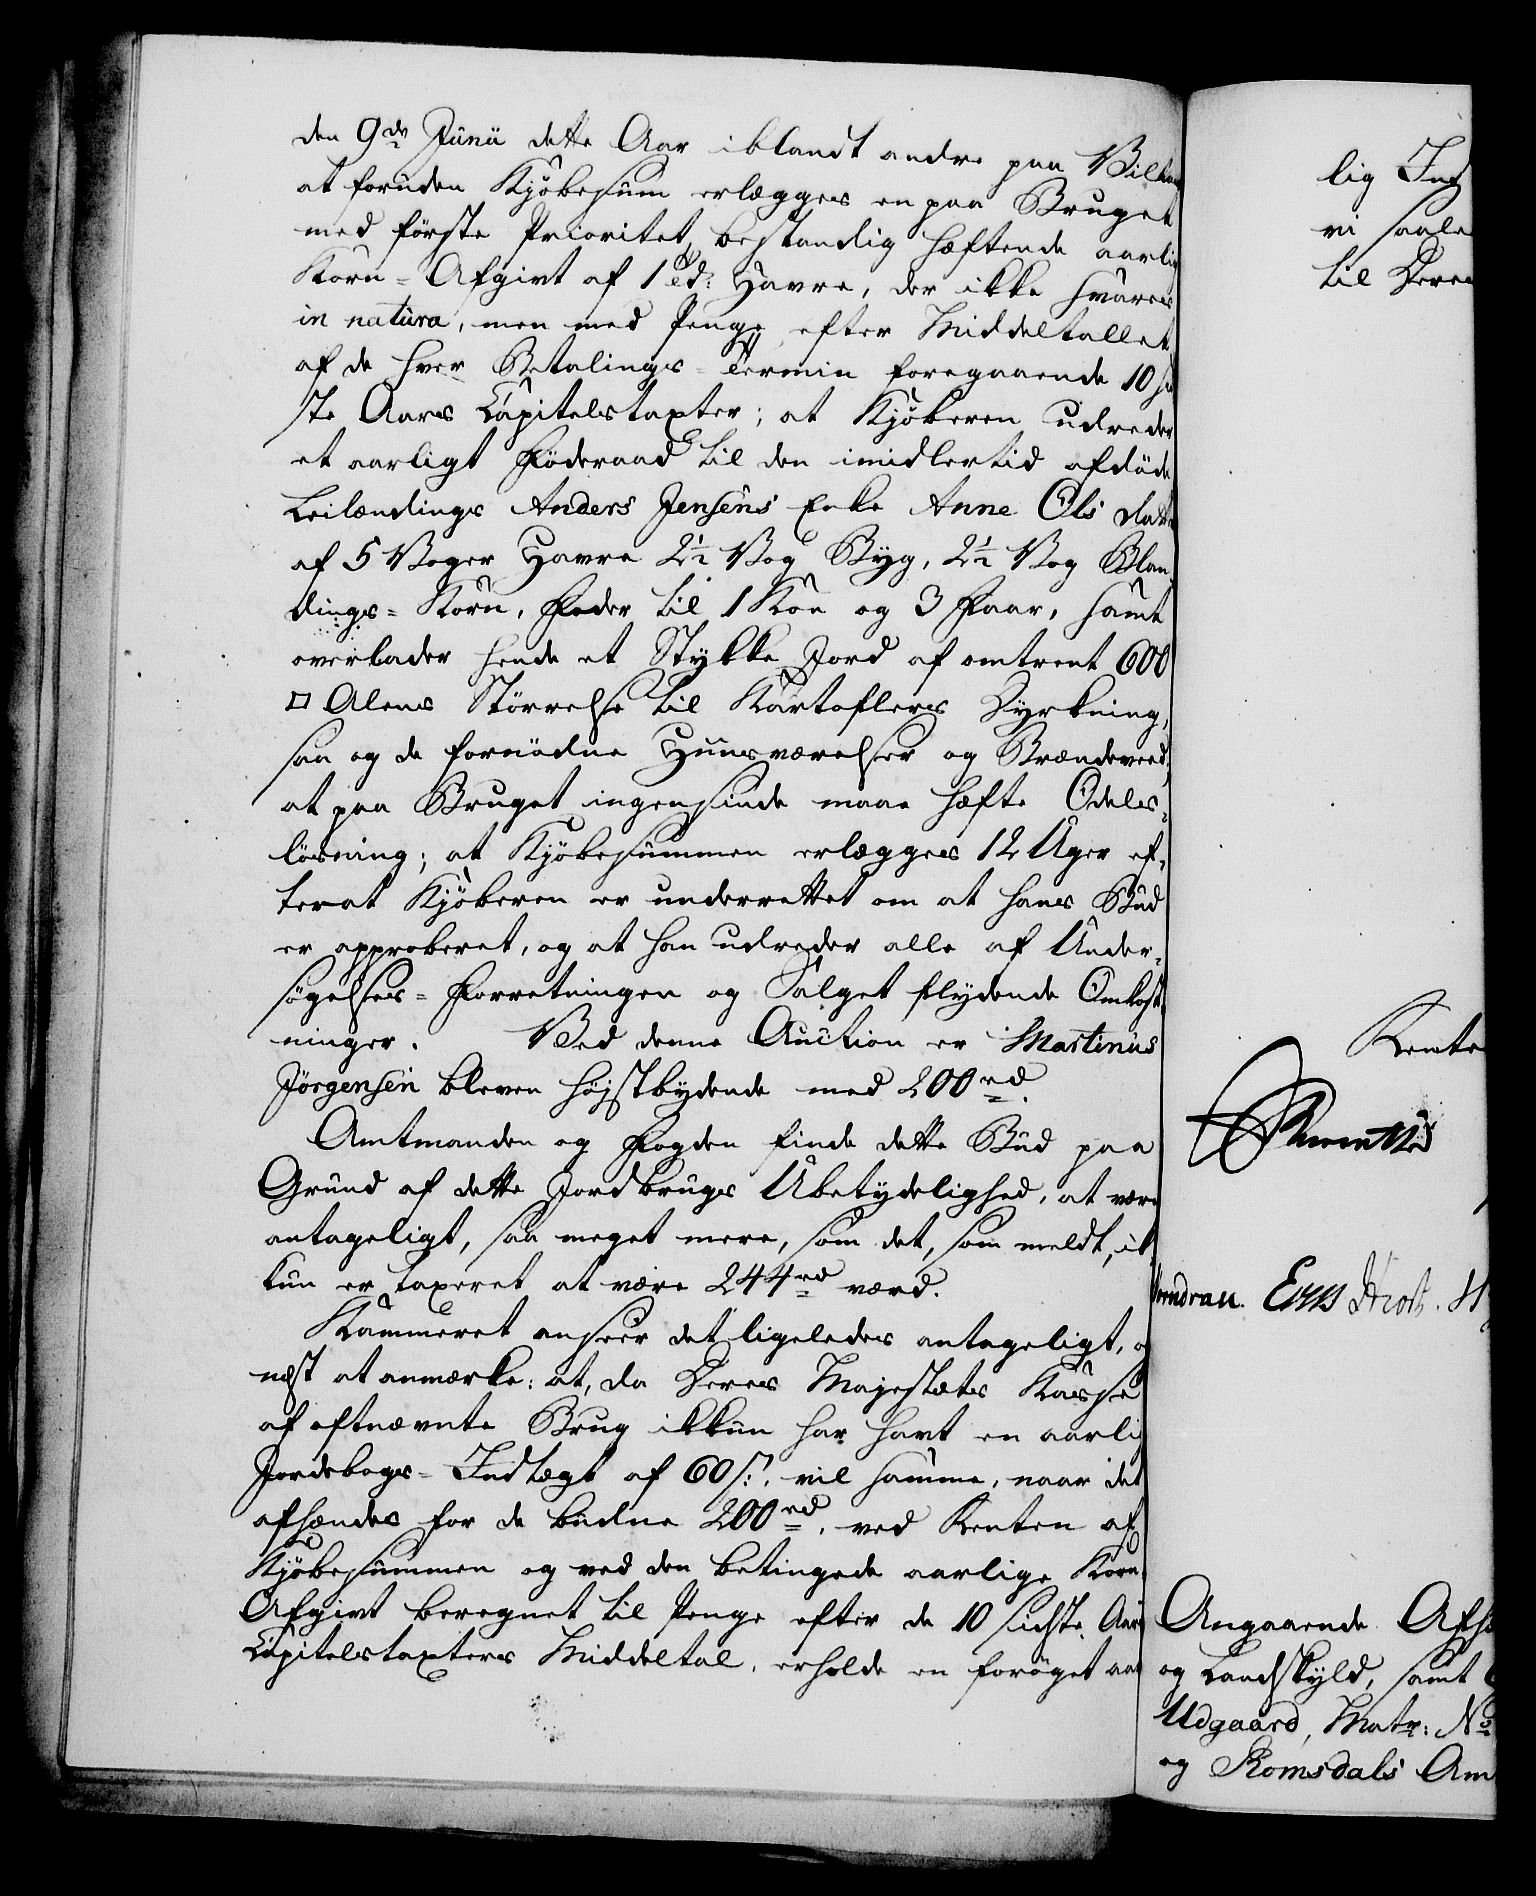 den 9de Junii dette Aar iblandt andre paa Vilkaar
at foruden Kjöbesum erlægges en paa Bruget
med förste Prioritet bestandig hæftende aarlig
Korn-Afgivt af 1 Td: Havre, der ikke svares
in natura, men med Penge efter Middeltallet
af de hver Betalings-Termin foregaaende 10 si
ste Aars Capitelstaxter; at Kjöberen udreder
et aarligt Föderaad til den imidlertid afdöde
Leilændings Anders Jensens Enke Anne Ols datter
af 5 Voger Havre 2 1/2 Vog Byg, 2 1/2 Vog Blan
dings-Korn, Foder til 1 Koe og 3 Faar, samt
overlader hende et Stykke Jord af omtrent 600
□ Alens Störrelse til Kartoflers Dyrkning,
saa og de fornödne Huusværelser og Brændeveed,
at paa Bruget ingensinde maae hæfte Odels-
lösning; at Kjöbesummen erlægges 12 Uger ef-
terat Kjöberen er underrettet om at hans Bud
er approberet, og at han udreder alle af Under-
sögelses-Forretningen og Salget flydende Omkost-
ninger. Ved denne Auction er Martinus
Jörgensen bleven höjstbydende med 200 rd.
Amtmanden og Fogden finde dette Bud paa
Grund af dette Jordbrugs Ubetydelighed, at være
antageligt, saa meget mere, som det, som meldt, ik
kun er taxeret at være 244 rd værd.
Kammeret anseer det ligeledes antageligt, o
næst at anmærke: at, da Deres Majestæts Kasse
af oftnævnte Brug ikkun har havt en aarli
Jordebogs-Indtægt af 60 s:, vil samme, naar det
afhændes for de budne 200 rd, ved Renten af
Kjöbesummen og ved den betingede aarlige Korn-
Afgivt beregnet til Penge efter de 10 sidste Aars
Capitelstaxters Middeltal, erholde en foröget aar
lig Ind
vi saale
til Deres
Rente
Angaaende Afhæ
og Landskyld, samt
Udgaard, Matr: No
og Romsdals Am